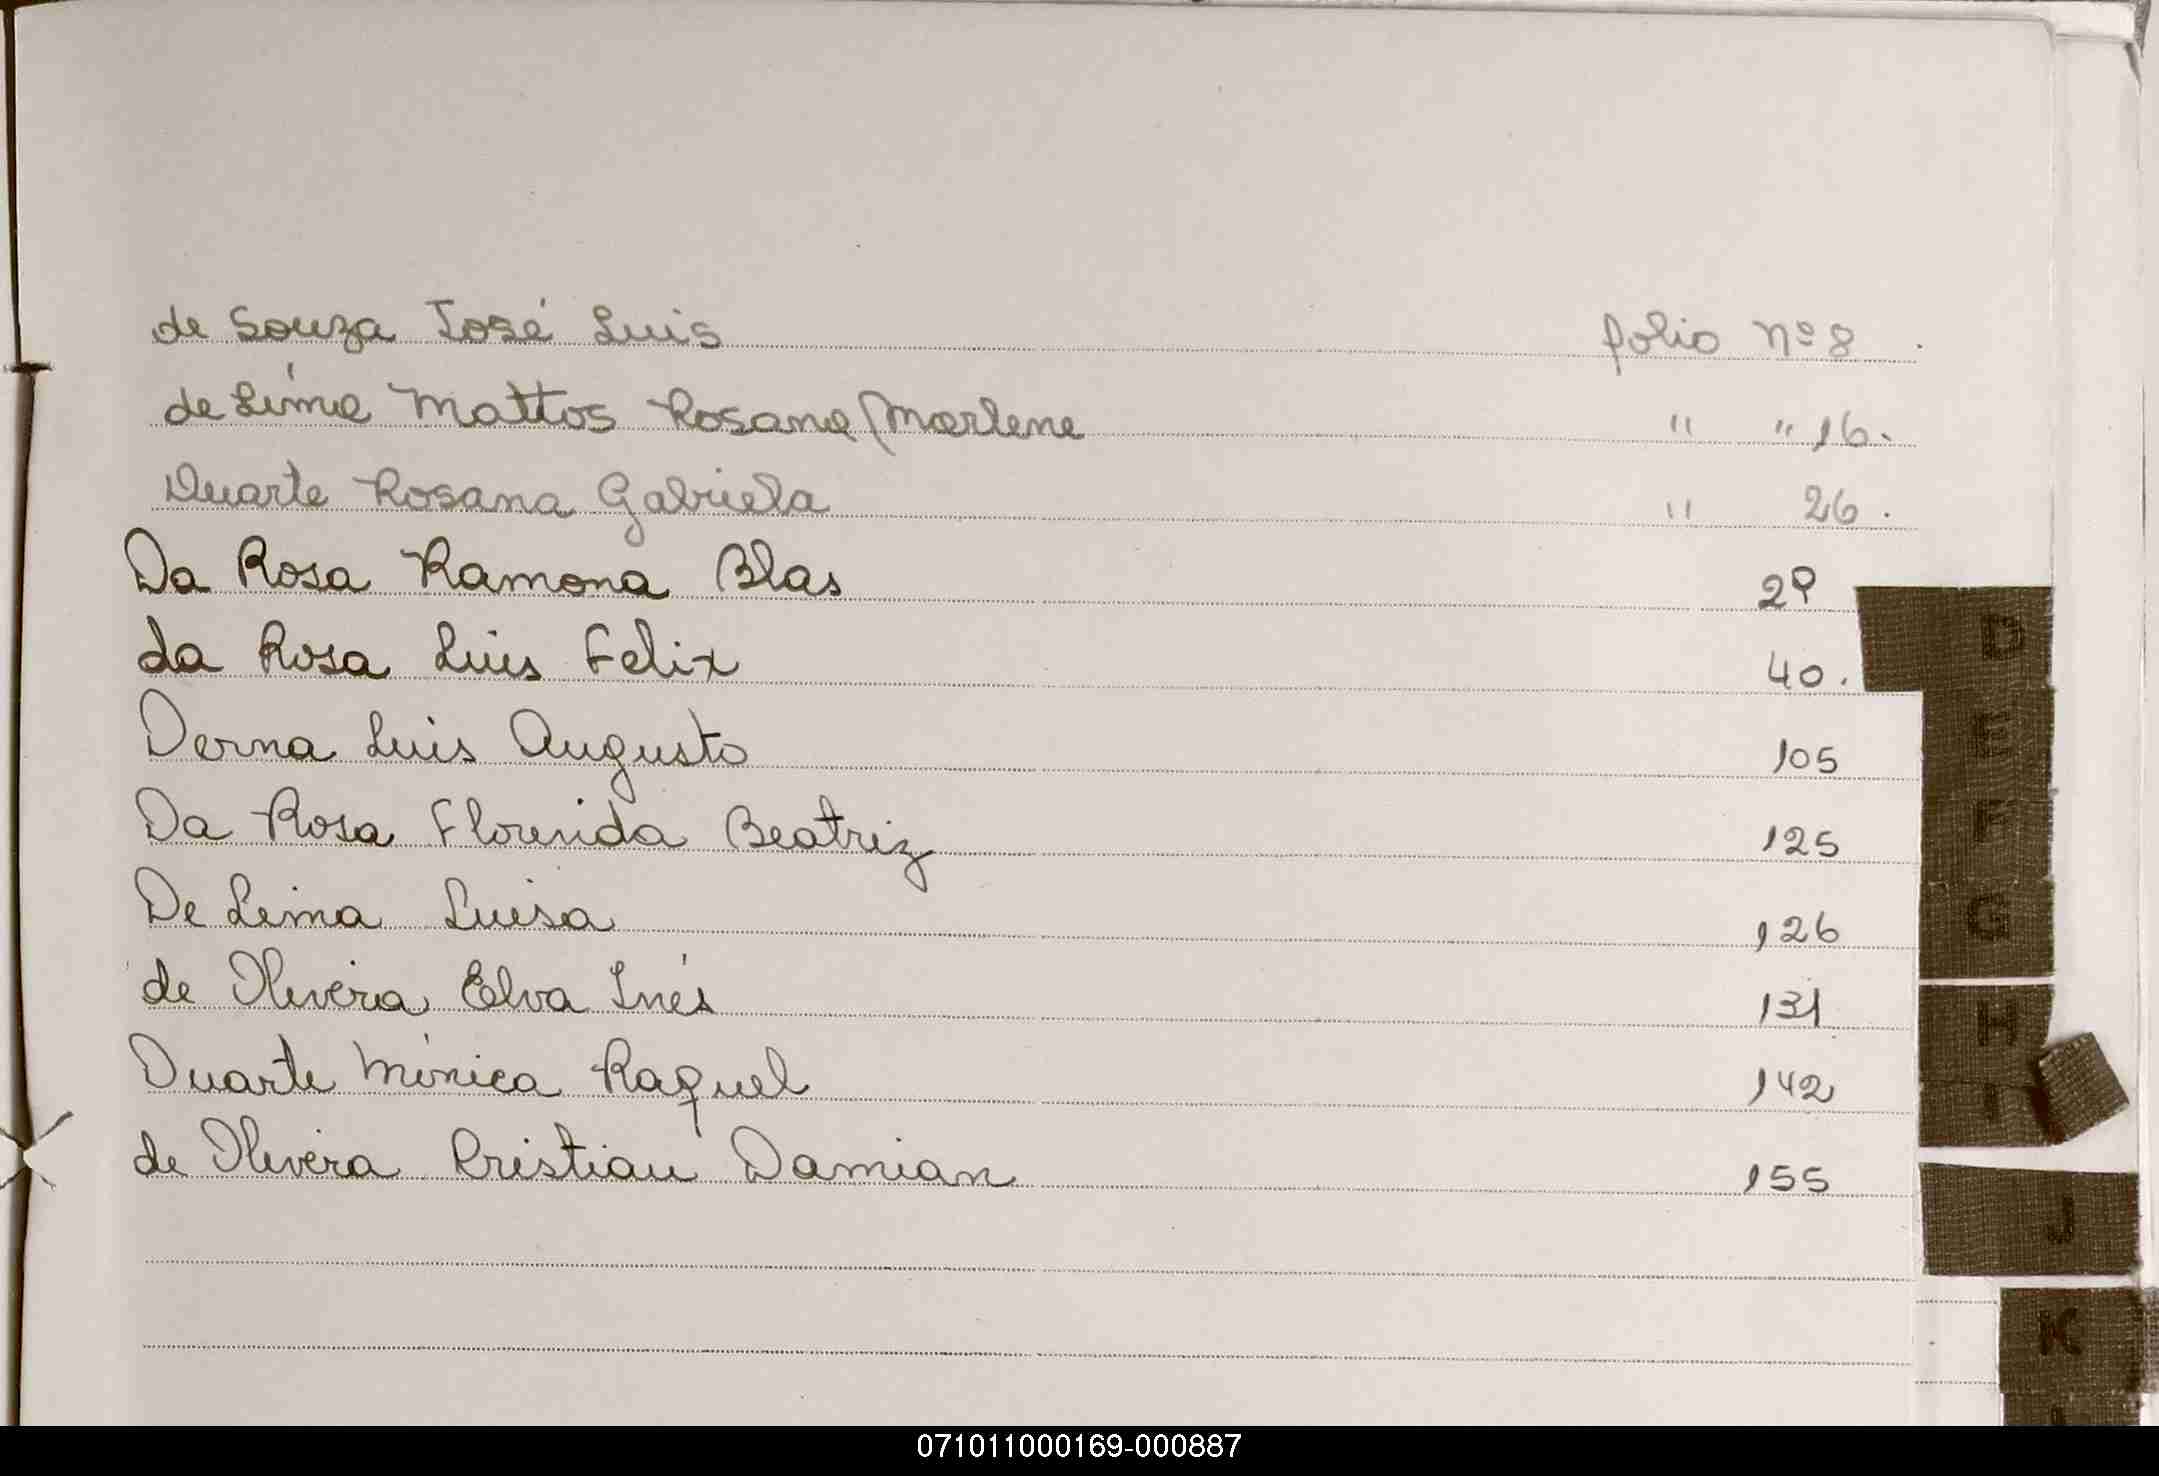 de Souza José Luis folio nº 8
de Líma Mattos Rosana Marlene " " 16.
Duarte Rosana Gabriela " 26.
Da Rosa Ramona Blas 29
da Rosa Luis Felix 40.
Derna Luis Augusto 105
Da Rosa Florinda Beatriz 125
De Lima Luisa 126
de Olivera Elva Inés 131
Duarte Mónica Raquel 142
de Olivera Cristian Damian 155
D
E
F
G
H
I
J
K
071011000169-000887